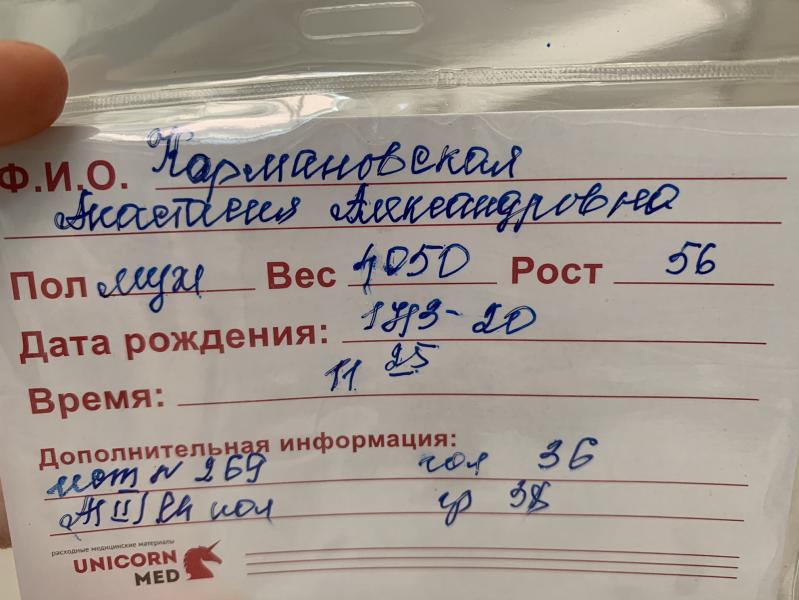 Ф.И.О. Кармановская
Анастасия Александровна
Пол муж Вес 4050 Рост 56
Дата рождения: 20
Время: 11 25
Дополнительная информация:
ист № 269 гол 36
A(II) Rh пол гр 38
расходные медицинские материалы
UNICORN
MED